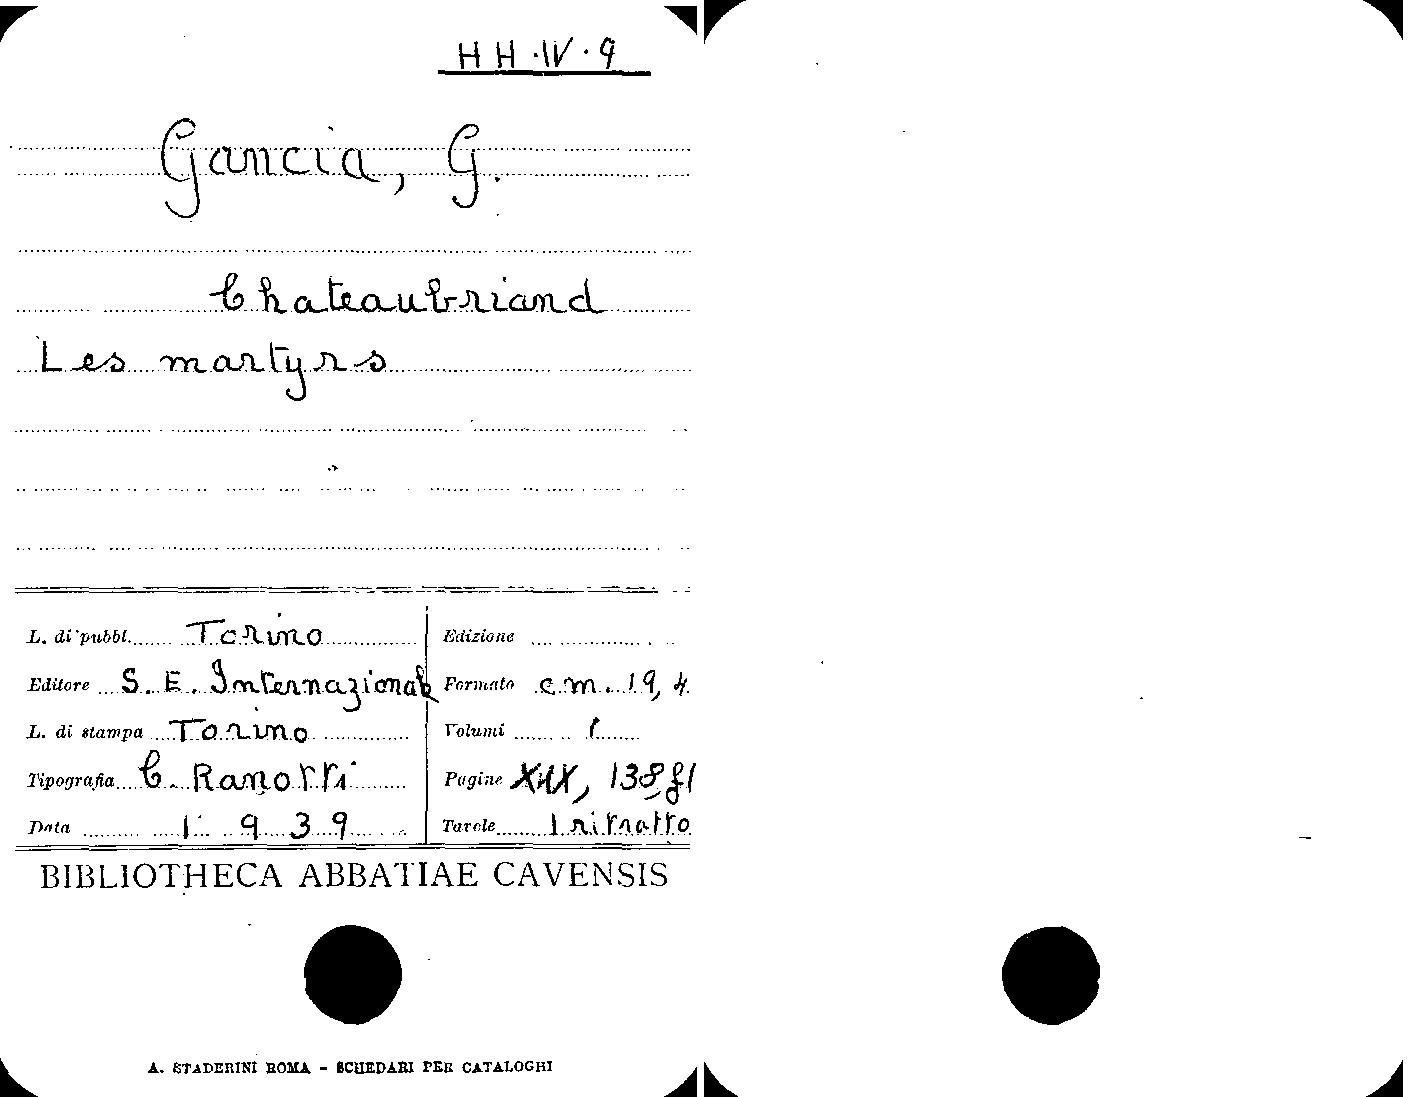 HH·IV·9
Gancia, G.
Chateaubriand
Les martyrs
L. di pubbl. Torino
Editore S. E. Internazionale
L. di stampa Torino
Tipografia C. Ranotti
Data 1939
Edizione
Formato cm. 19,4
Volumi 1
Pagine 138
Tavole 1 ritratto
BIBLIOTHECA ABBATIAE CAVENSIS
A. STADERINI ROMA - SCHEDARI PER CATALOGHI